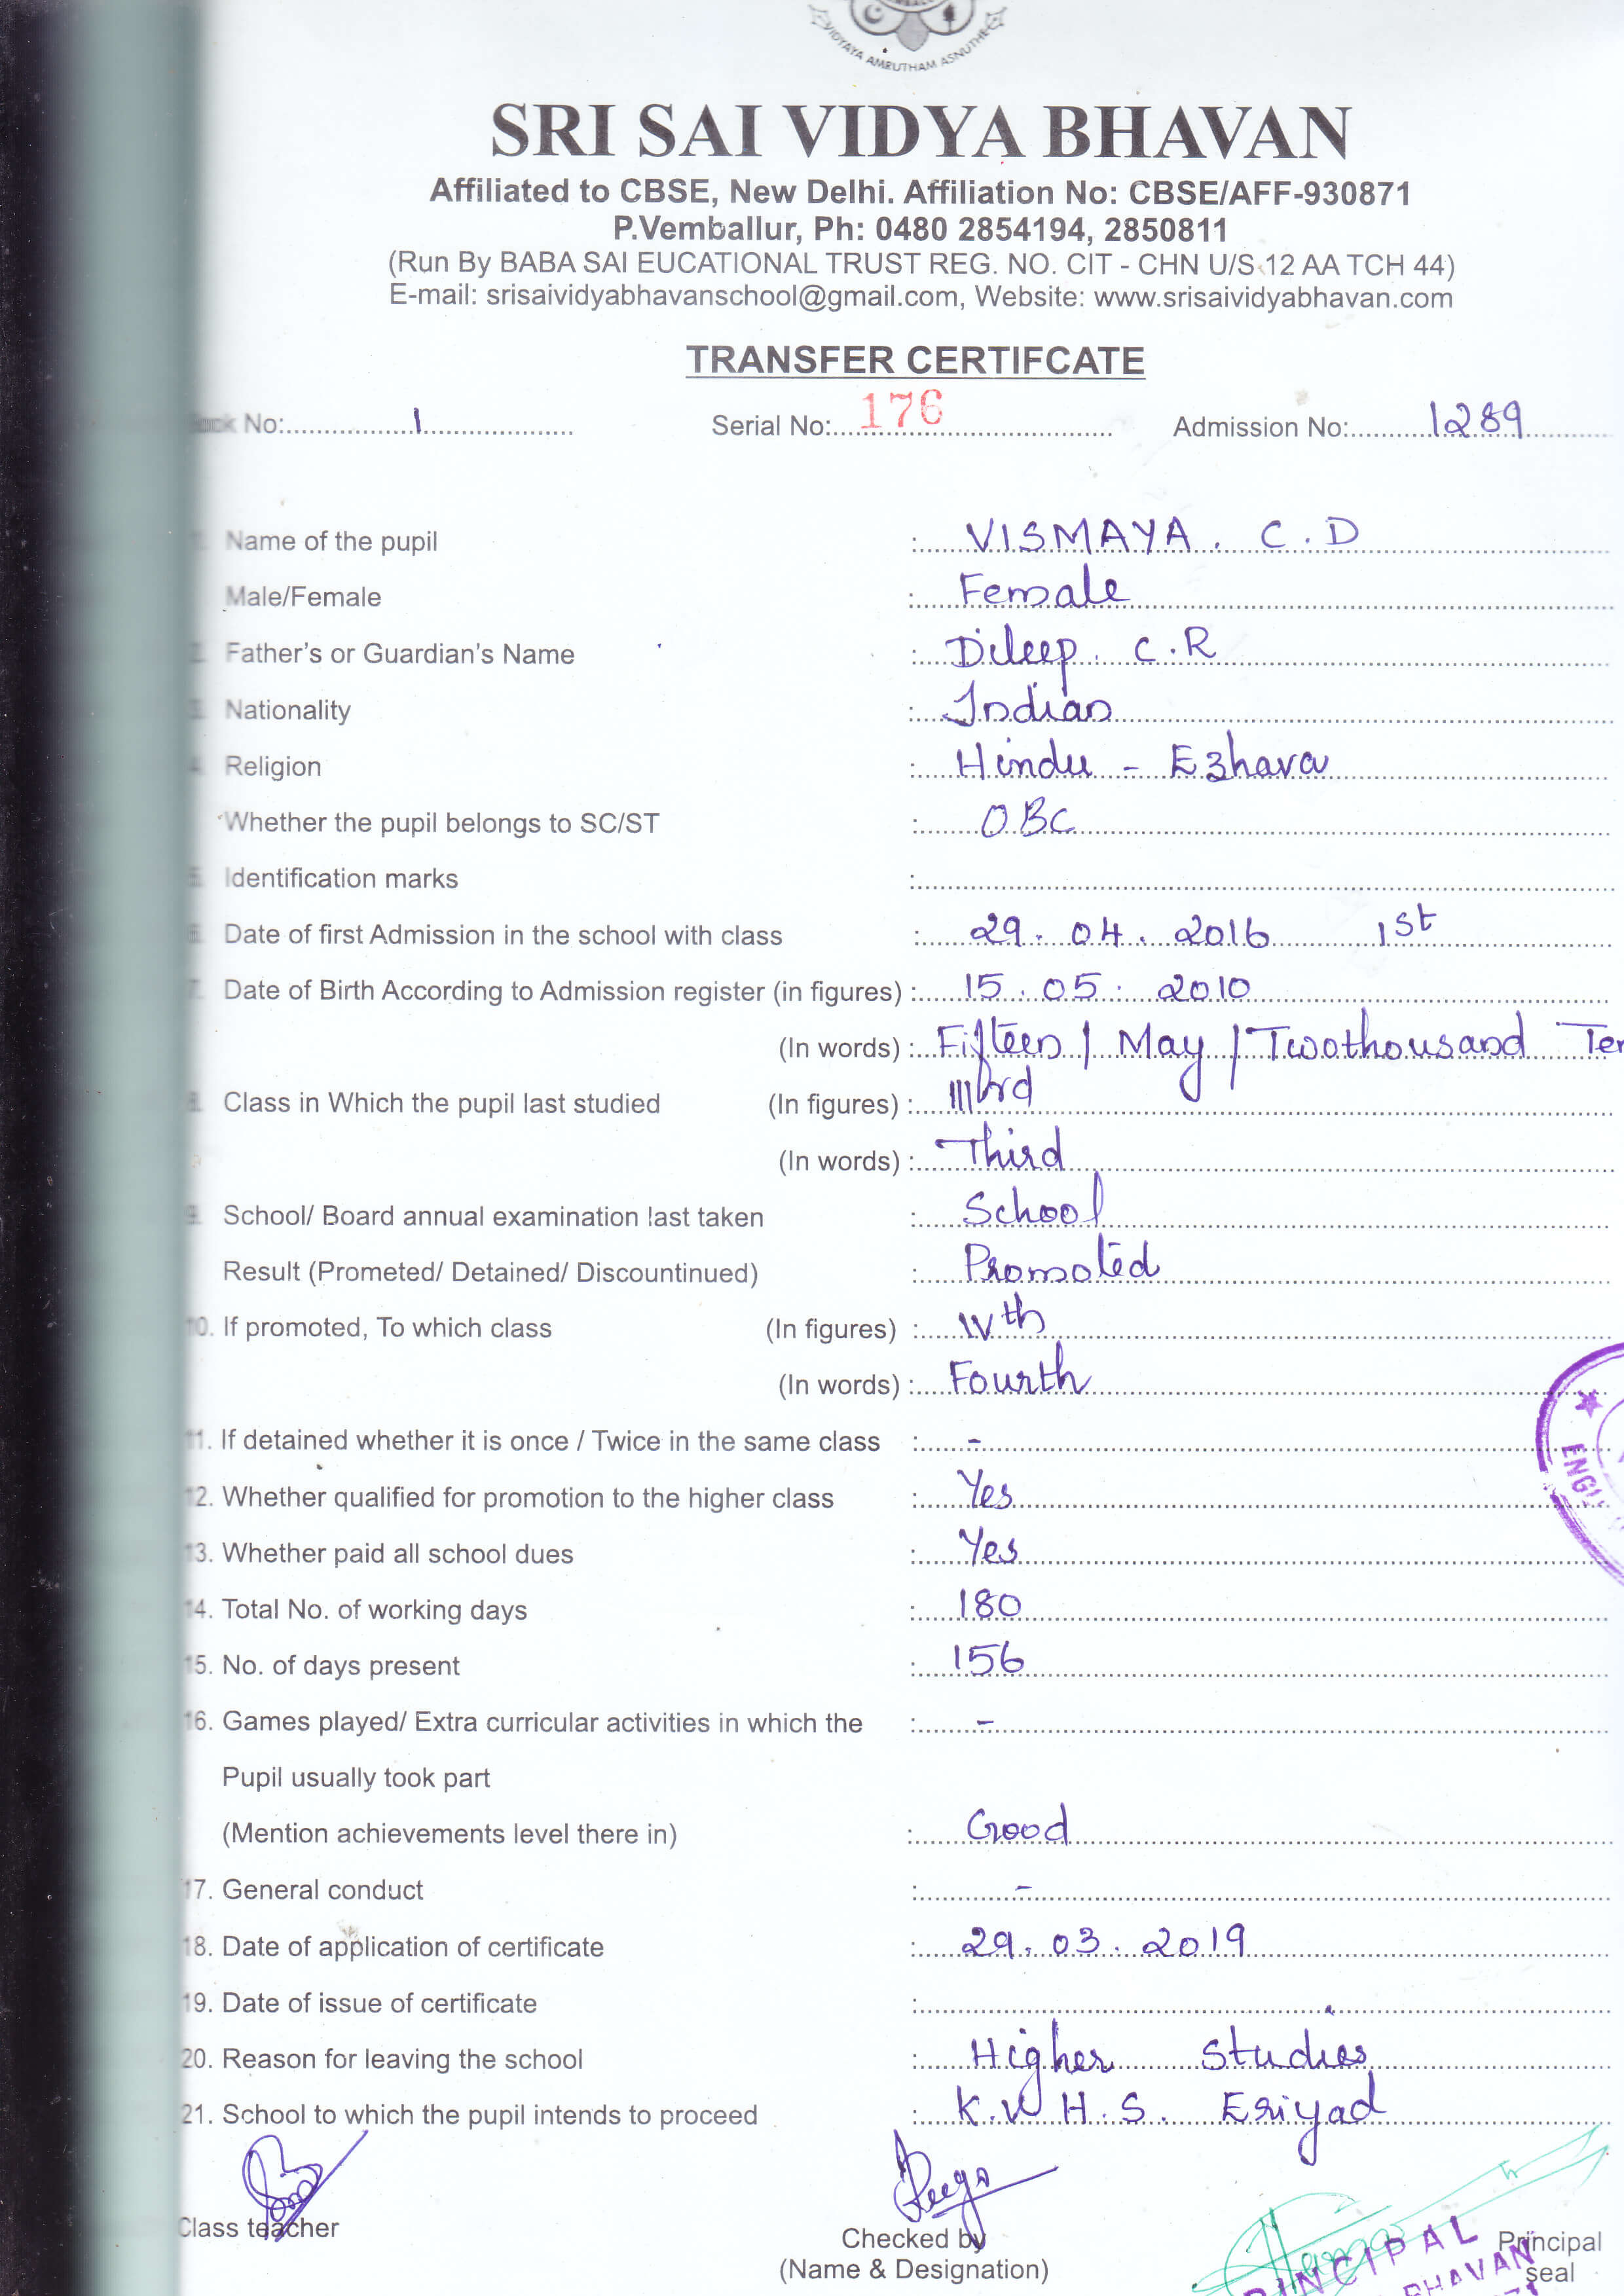 VIDYAYA AMRUTHAM ASNUTHE
SRI SAI VIDYA BHAVAN
Affiliated to CBSE, New Delhi. Affiliation No: CBSE/AFF-930871
P.Vemballur, Ph: 0480 2854194, 2850811
(Run By BABA SAI EUCATIONAL TRUST REG. NO. CIT - CHN U/S 12 AA TCH 44)
E-mail: srisaividyabhavanschool@gmail.com, Website: www.srisaividyabhavan.com
TRANSFER CERTIFCATE
Book No: 1 Serial No: 176 Admission No: 1289
1. Name of the pupil : VISMAYA. C.D
Male/Female : Female
2. Father's or Guardian's Name : Dileep. C.R
3. Nationality : Indian
4. Religion : Hindu - Ezhava
Whether the pupil belongs to SC/ST : OBC
5. Identification marks :
6. Date of first Admission in the school with class : 29.04.2016 1st
7. Date of Birth According to Admission register (in figures) : 15.05.2010
(In words) : Fifteen / May / Twothousand Ten
8. Class in Which the pupil last studied (In figures) : IIIrd
(In words) : Third
9. School/ Board annual examination last taken : School
Result (Prometed/ Detained/ Discountinued) : Promoted
10. If promoted, To which class (In figures) : IVth
(In words) : Fourth
11. If detained whether it is once / Twice in the same class : -
12. Whether qualified for promotion to the higher class : Yes
13. Whether paid all school dues : Yes
14. Total No. of working days : 180
15. No. of days present : 156
16. Games played/ Extra curricular activities in which the : -
Pupil usually took part
(Mention achievements level there in) : Good
17. General conduct : -
18. Date of application of certificate : 29.03.2019
19. Date of issue of certificate :
20. Reason for leaving the school : Higher Studies
21. School to which the pupil intends to proceed : K.V H.S. Eriyad
Class teacher
Checked by
(Name & Designation)
Principal
seal
PRINCIPAL
BHAVAN